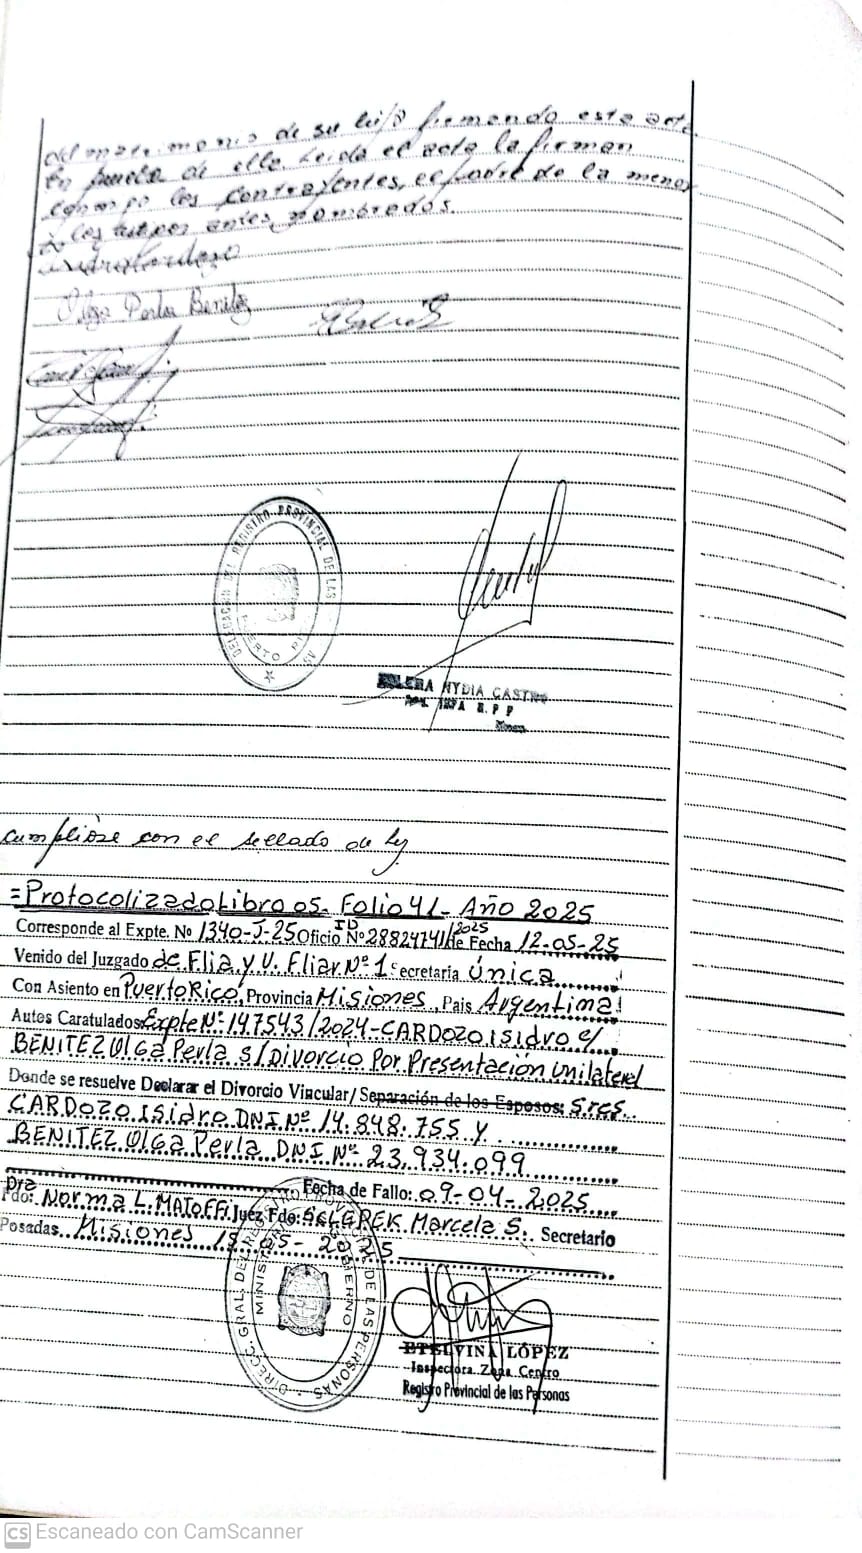 del matrimonio de su hija firmando este acta
en prueba de ello. Leida el acta la firman
conmigo los contrayentes, el padre de la menor
y los testigos antes nombrados.
Isidro Cardozo
Olga Perla Benitez
DELEGACION DEL REGISTRO PROVINCIAL DE LAS
PUERTO
NYDIA CASTRO
R. P. P
Cumplióse con el sellado de ley
=Protocolizado Libro 05. Folio 41- Año 2025
Corresponde al Expte. No 1340-J-25 Oficio ID Nº 28824741/2025 de Fecha 12-05-25
Venido del Juzgado de Flia y V. Fliar Nº 1 Secretaria Única
Con Asiento en Puerto Rico, Provincia Misiones, Pais Argentina
Autos Caratulados Expte Nº 147543/2024-CARDOZO ISidro c/
BENITEZ Olga Perla S/DIVORCIO Por Presentación Unilateral
Donde se resuelve Declarar el Divorcio Vincular/ Separación de los Esposos: Sres.
CARDOZO ISidro DNI Nº 14.848.755 Y
BENITEZ Olga Perla DNI Nº 23.934.099
Fecha de Fallo: 09-04-2025
Fdo: Dra Norma L. MATOFFI Juez Fdo: Marcela S. Secretario
Posadas, Misiones 05-2025
DIRECC. GRAL. DEL REGISTRO PROVINCIAL DE LAS PERSONAS
MINISTERIO DE GOBIERNO
ETELVINA LÓPEZ
Inspectora Zona Centro
Registro Provincial de las Personas
CS Escaneado con CamScanner